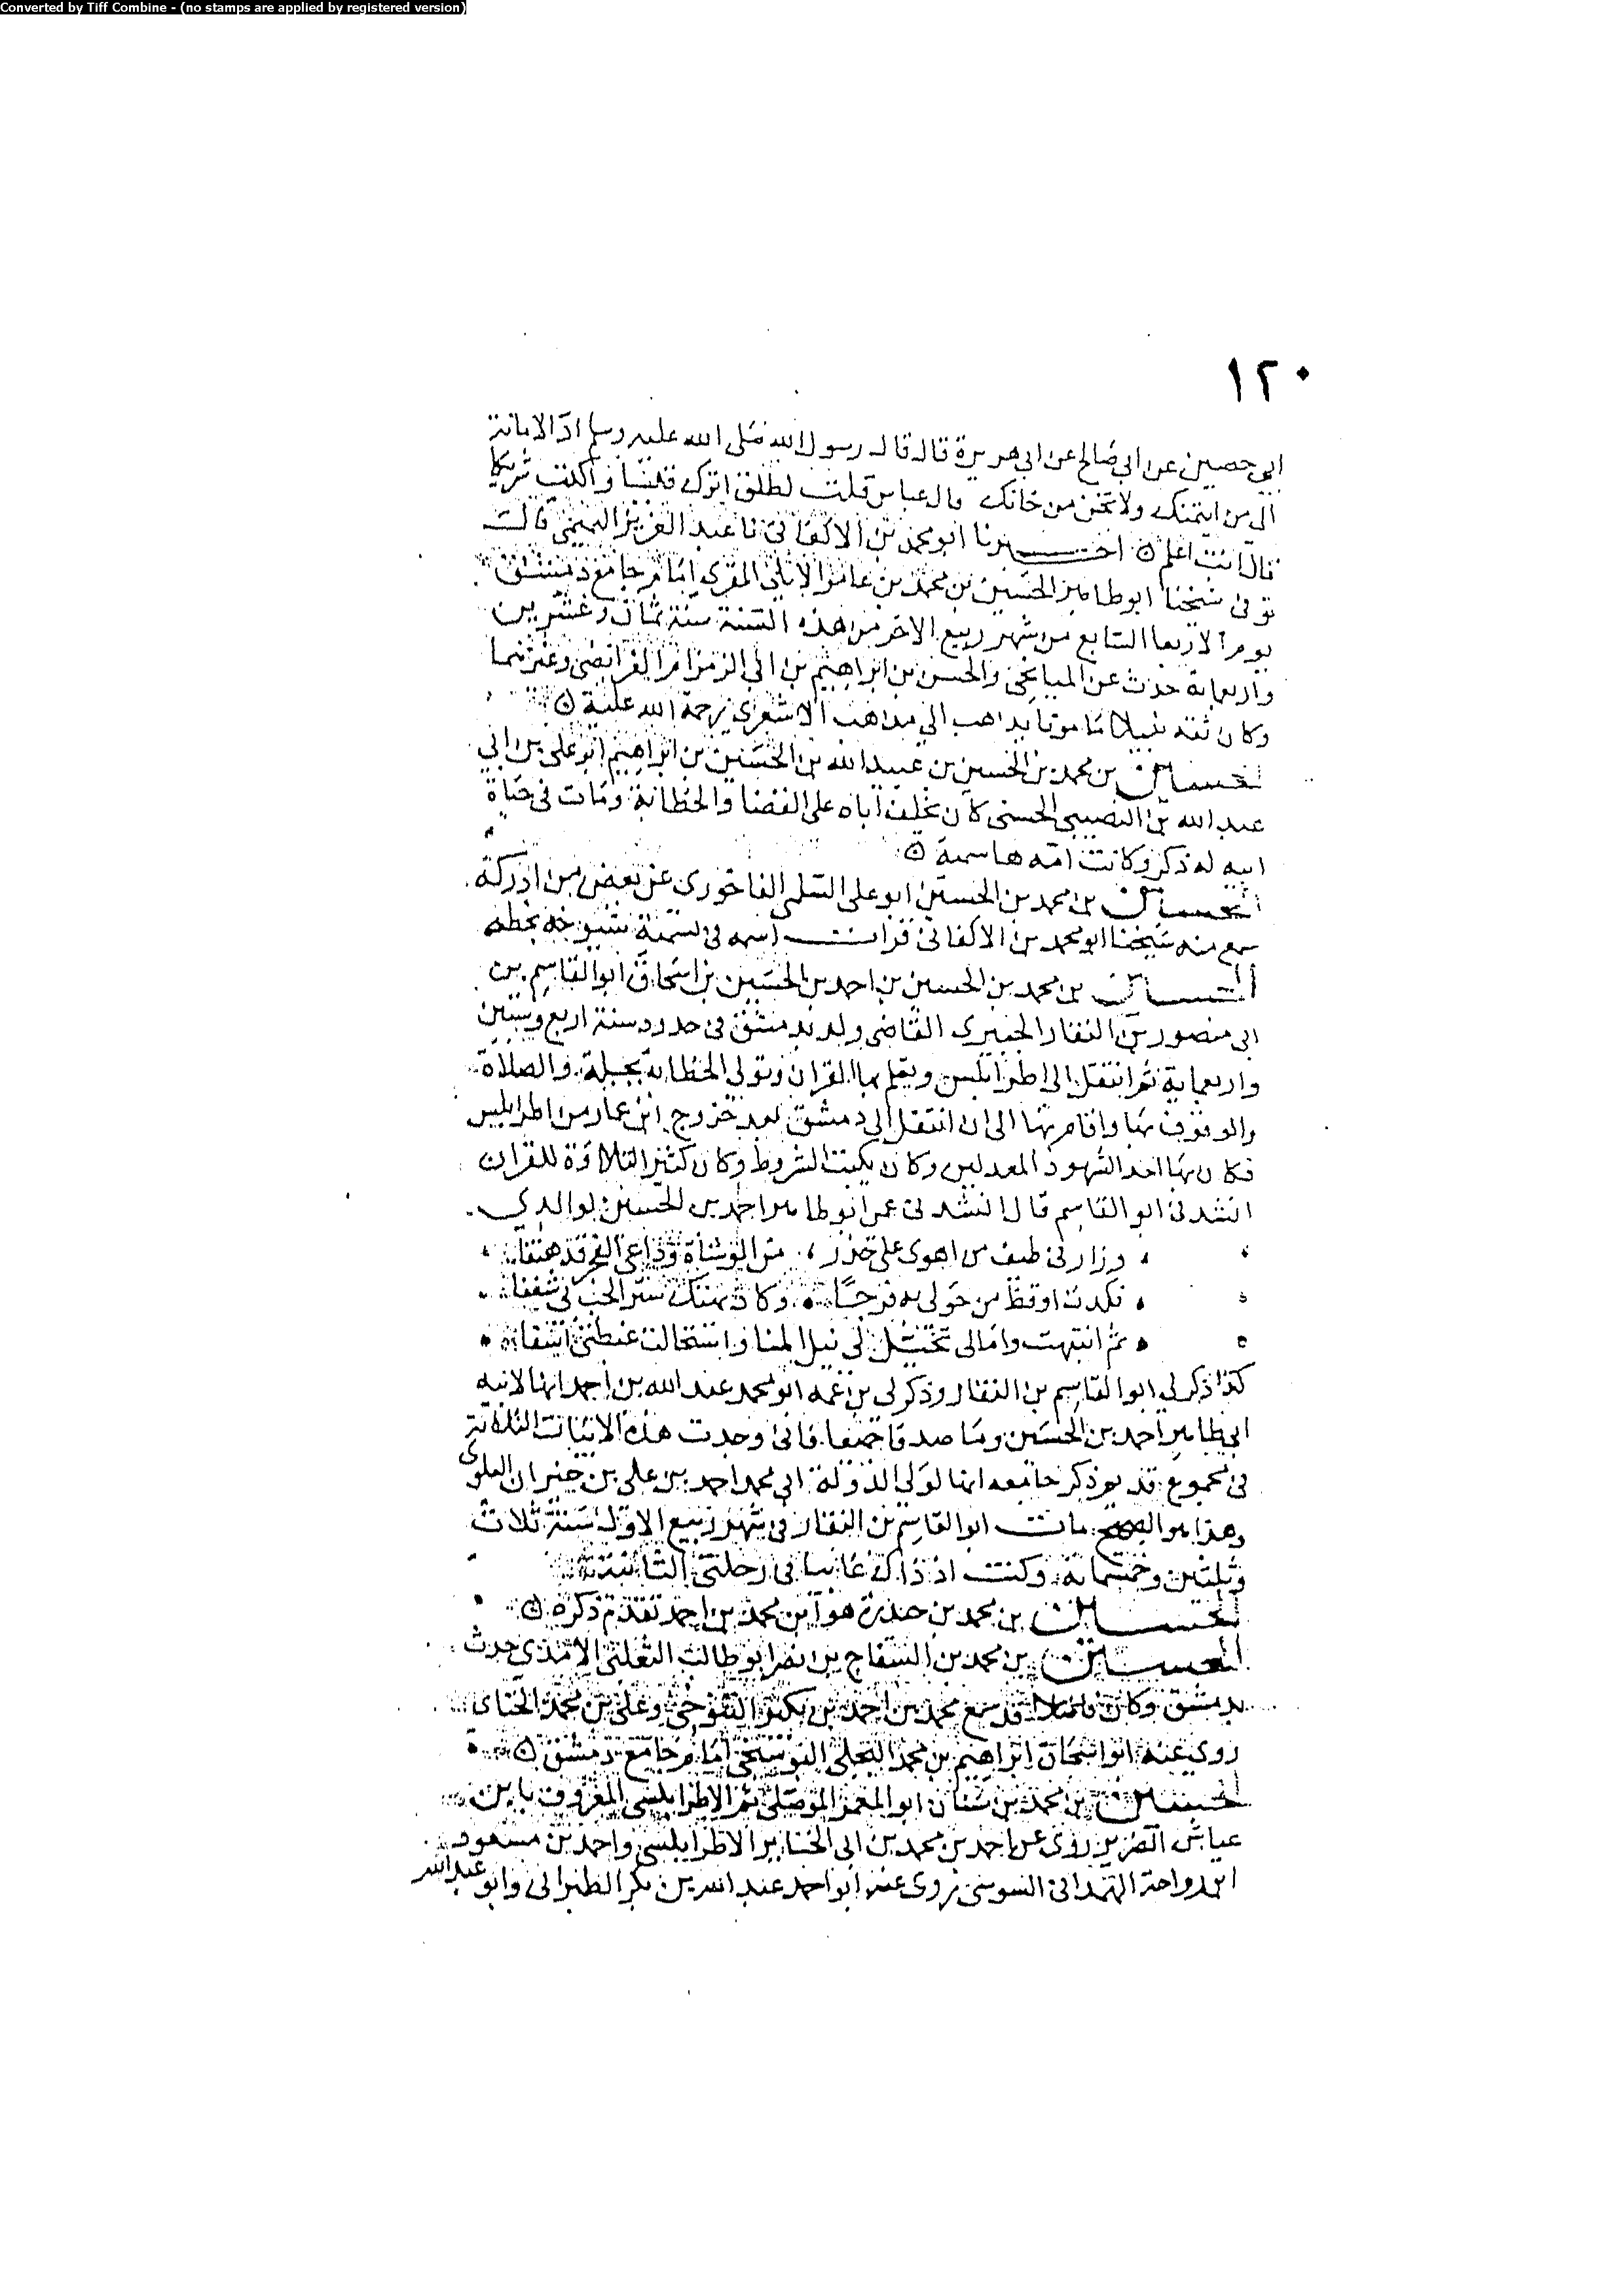 Converted by Tiff Combine - (no stamps are applied by registered version)
١٢٠
ابي حصين عن ابي صالح عن ابي هريرة قال قال رسول الله صلى الله عليه وسلم اد الامانة
الي من ايتمنك ولا تخن من خانك قال عباس قلت لطلق اترك قيسا واكتب شريكا
قال انت اعلم ۞ اخبرنا ابو محمد بن الاكفاني نا عبد العزيز التميمي قالت
توفى شيخنا ابو طاهر الحسين بن محمد بن عامر الابلي المقري امام جامع دمشق
يوم الاربعا السابع من شهر ربيع الاخر من هذه السنة سنة ثمان وعشرين
واربعماية حدث عن الميانجي والحسن بن ابراهيم بن ابي الزمزام الفرايضي وغيرهما
وكان ثقة نبيلا مامونا يذهب الي مذاهب الاشعري رحمة الله علية ۞
الحسين بن محمد بن الحسين بن عبيد الله بن الحسين بن ابراهيم ابو علي بن ابي
عبد الله بن النصيبي الحسنى كان يخلف اباه على القضا والخطابة ومات في حياة
ابيه له ذكر وكانت امه هاشمية ۞
الحسين بن محمد بن الحسين ابو على السلمى الفاخورى عن بعض من ادركه
سمع منه شيخنا ابو محمد بن الاكفاني قرات اسمه في تسمية شيوخه بخطه
الحسين بن محمد بن الحسين بن احمد بن الحسين بن اسحاق ابو القاسم بن
ابى منصور بن النقار الحميرى القاضى ولد بدمشق فى حدود سنة اربع وستين
واربعماية ثم انتقل الى اطرابلس وتعلم بها القران وتولى الخطابة بجبلة والصلاة
والوقوف بها واقام بها الى ان انتقل الى دمشق بعد خروج ابن عمار من اطرابلس
فكان بها احد الشهود المعدلين وكان يكتب الشروط وكان كثير التلاوة للقران
انشدنى ابو القاسم قال انشدنى عمى ابو طاهر احمد بن الحسين لوالدي
وزارنى طيف من اهوى على حذر ، من الوشاة وداعى الفجر قد هتفا
فكدت اوقظ من حولى به فرحا ۞ وكاد يهتك ستر الحب بى شغفا
ثم انتبهت وامالى تخيل لى نيل المنا فاستحالت غبطتى اسفا
كذا ذكر لي ابو القاسم بن النقار وذكر لى بن عمه ابو محمد عبد الله بن احمد انها لابيه
ابي طاهر احمد بن الحسين وما صدقا جميعا فانى وجدت هذه الابيات الثلاثة
فى مجموع قديم ذكر جامعه انها لولى الدولة ابى محمد احمد بن على بن خيران العلوى
وهذا هو الصحيح مات ابو القاسم بن النقار فى شهر ربيع الاول سنة ثلاث
وثلثين وخمسماية وكنت اذ ذاك غايبا فى رحلتى الثانية
الحسين بن محمد بن حيدرة هو ابن محمد بن احمد تقدم ذكره ۞
الحسين بن محمد بن السفاح بن نصر ابو طالب الثعلبى الامدى حدث
بدمشق وكان فاضلا قد سمع محمد بن احمد بن بكير التنوخى وعلى بن محمد الحناى
روى عنه ابو اسحاق ابراهيم بن محمد البجلى البوسنجى امام جامع دمشق ۞
الحسين بن محمد بن سنان ابو المعمر الموصلى ثم الاطرابلسى المعروف بابن
عياش الضرير روى عن احمد بن محمد بن ابى الخناجر الاطرابلسى واحمد بن مسعود
ابن رواحة الهمدانى السوسى روى عنه ابو احمد عبد الله بن بكر الطبرانى وابو عبد الله